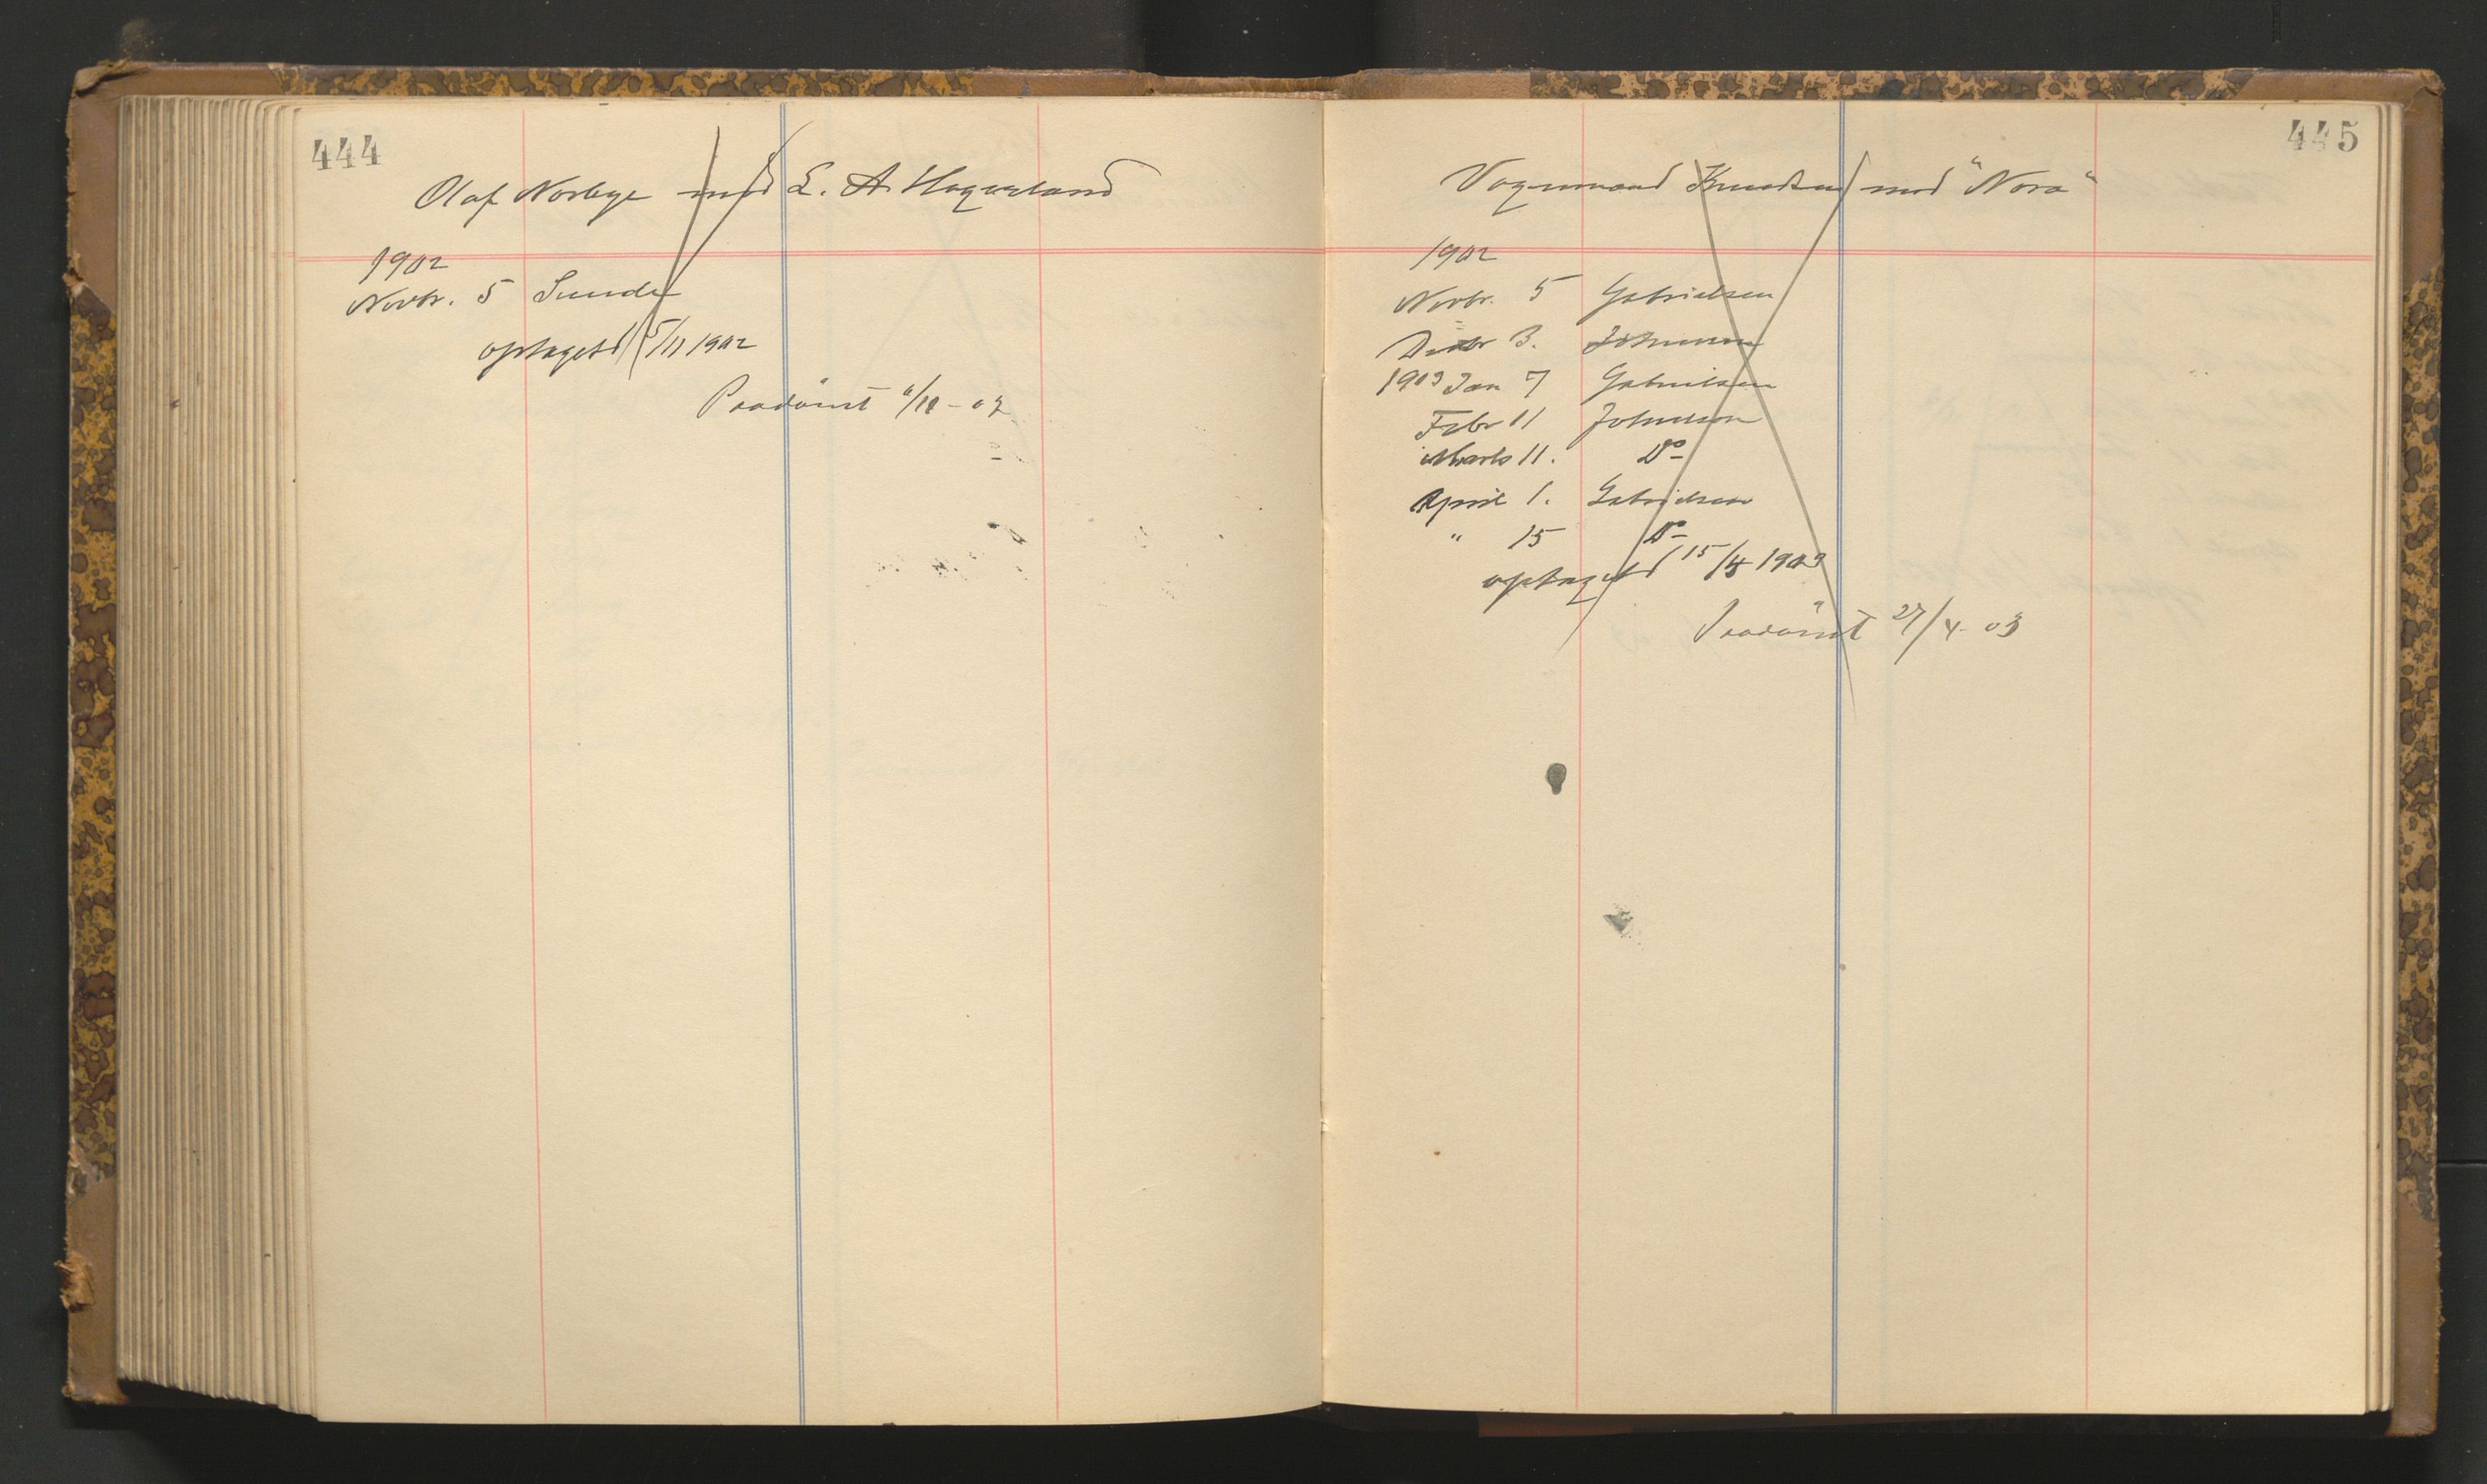 444
Olaf Norbye mod L. A. Hagerland
1902
Novbr. 5 Sunde
optaget 5/11 1902
Paadömt 6/11-02
445
Vognmand Knudsen mod "Nora"
1902
Novbr. 5 Gabrielsen
Decbr 3. Johnsen
1903 Jan 7 Gabrielsen
Febr 11 Johnsen
Marts 11. Do
April 1. Gabrielsen
" 15 Do
optaget 15/4 1903
Paadömt 27/4-03